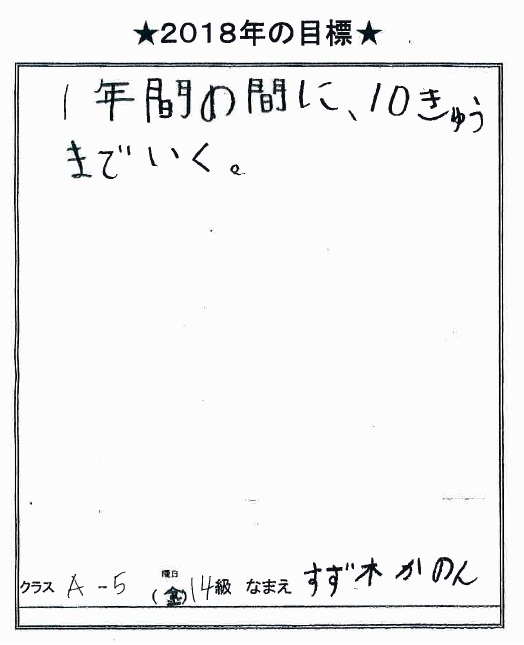 ★2018年の目標★
1年間の間に、10きゅう
までいく。
クラス A-5 曜日(金) 14級 なまえ すず木 かのん